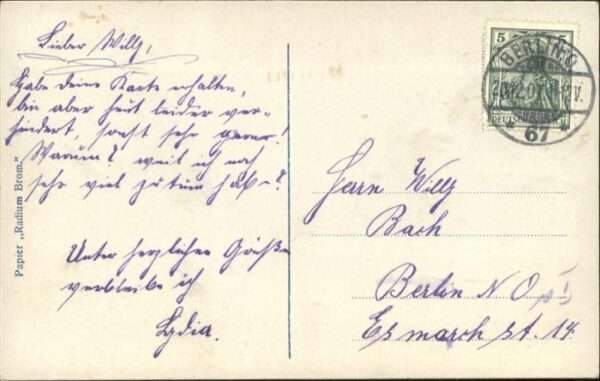 Lieber Willy,
Habe deine Karte erhalten,
bin aber heut leider ver-
hindert, sonst sehr gerne!
Warum? weil ich noch
sehr viel zu tuen habe.
Unter herzlichen Grüßen
verbleibe ich
Lydia.
Papier „Radium Brom."
5 5
BERLIN O.
67
DEUTSCHES
Herrn Willy
Bach
Berlin N O
Esmarch st. 14